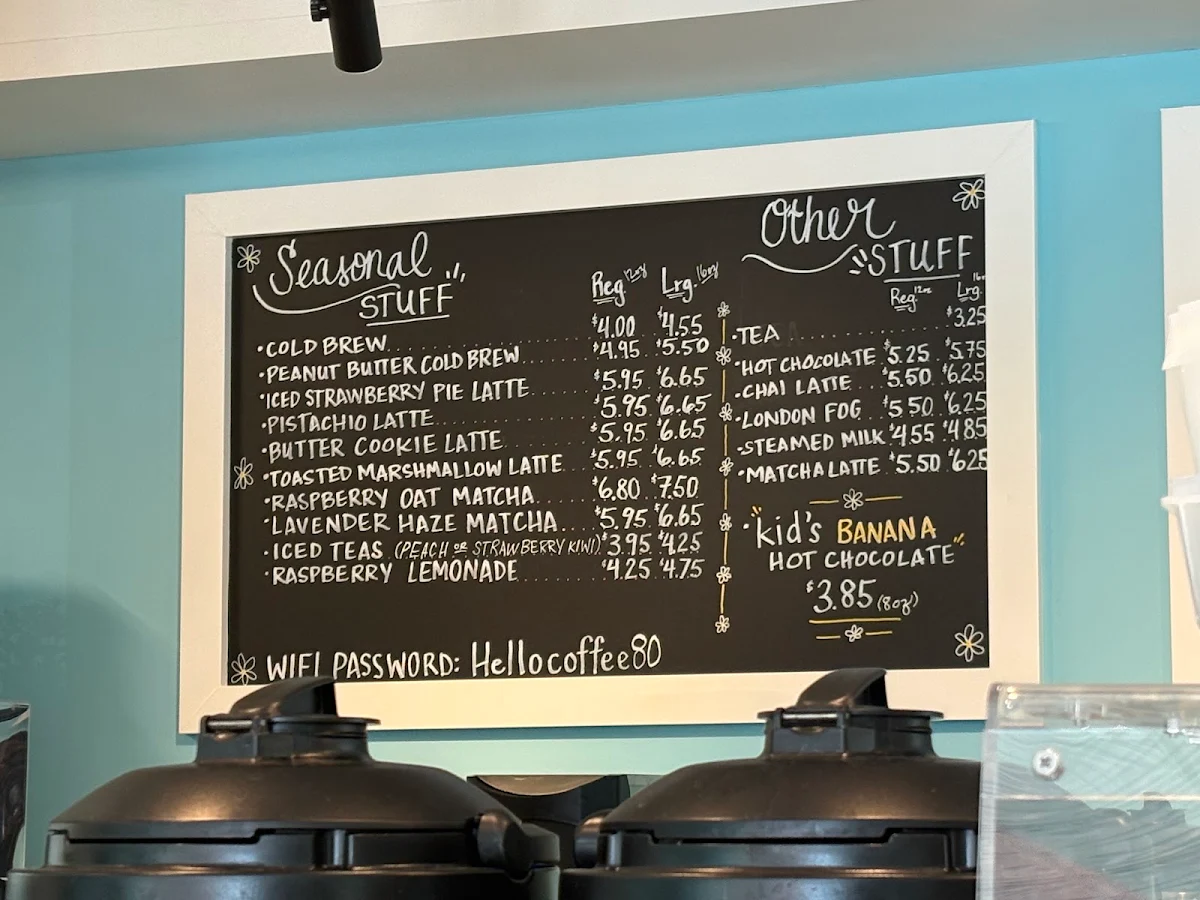 Seasonal
STUFF
Reg. 12oz Lrg. 16oz
• COLD BREW $4.00 $4.55
• PEANUT BUTTER COLD BREW $4.95 $5.50
• ICED STRAWBERRY PIE LATTE $5.95 $6.65
• PISTACHIO LATTE $5.95 $6.65
• BUTTER COOKIE LATTE $5.95 $6.65
• TOASTED MARSHMALLOW LATTE $5.95 $6.65
• RASPBERRY OAT MATCHA $6.80 $7.50
• LAVENDER HAZE MATCHA $5.95 $6.65
• ICED TEAS (PEACH OR STRAWBERRY KIWI) $3.95 $4.25
• RASPBERRY LEMONADE $4.25 $4.75
WIFI PASSWORD: Hellocoffee80
Other
STUFF
Reg. 12oz Lrg.
• TEA $3.25
• HOT CHOCOLATE $5.25 $5.75
• CHAI LATTE $5.50 $6.25
• LONDON FOG $5.50 $6.25
• STEAMED MILK $4.55 $4.85
• MATCHA LATTE $5.50 $6.25
• "kid's BANANA
HOT CHOCOLATE"
$3.85 (8oz)